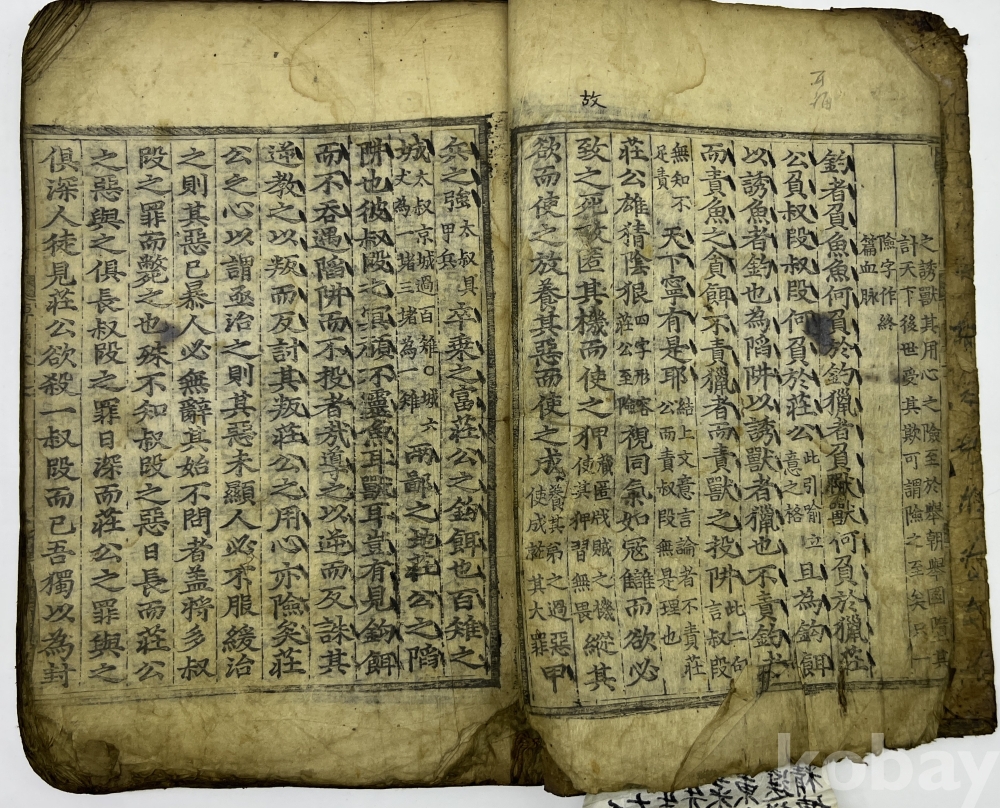 之誘獸其用心之險至於舉朝舉國墮其
計天下後世受其欺可謂險之至矣只一
險字作終
篇血脉
釣者負魚魚何負於釣獵者負獸獸何負於獵莊
公負叔段叔段何負於莊公此引喻立意之格且為鉤餌
以誘魚者釣也為陷阱以誘獸者獵也不責釣者
而責魚之貪餌不責獵者而責獸之投阱此二句言叔段
無知不足責天下寧有是耶結上文意言論者不責莊公而責叔段無是理也
莊公雄猜陰狠四字形容莊公至險視同氣如寇讎而欲必
致之死故匿其機而使之狎藏匿戕賊之機使其狎習無畏縱其
欲而使之放養其惡而使之成養其弟之過惡使成就其大罪甲
故
兵之強太叔具甲兵卒乘之富莊公之鉤餌也百雉之
城太叔京城過百雉○城六丈為一堵三堵為一雉兩鄙之地莊公之陷
阱也彼叔段之冥頑不靈魚耳獸耳豈有見鉤餌
而不吞遇陷阱而不投者哉導之以逆而反誅其
逆教之以叛而反討其叛莊公之用心亦險矣莊
公之心以謂亟治之則其惡未顯人必不服緩治
之則其惡已暴人必無辭其始不問者盖將多叔
段之罪而斃之也殊不知叔段之惡日長而莊公
之惡與之俱長叔段之罪日深而莊公之罪與之
俱深人徒見莊公欲殺一叔段而已吾獨以為封
kobay